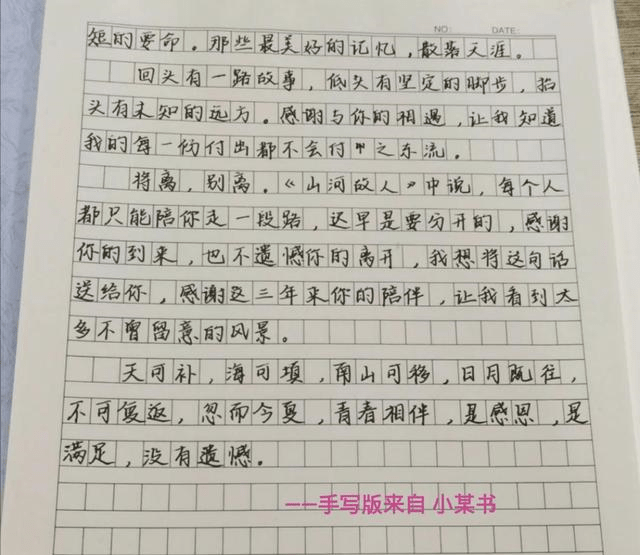 NO: DATE:
短的要命。那些最美好的记忆,散落天涯。
回头有一路故事,低头有坚定的脚步,抬
头有未知的远方。感谢与你的相遇,让我知道
我的每一份付出都不会付中之东流。
将离,别离。《山河故人》中说,每个人
都只能陪你走一段路,迟早是要分开的,感谢
你的到来,也不遗憾你的离开,我想将这句话
送给你,感谢这三年来你的陪伴,让我看到太
多不曾留意的风景。
天可补,海可填,南山可移,日月既往,
不可复返,忽而今夏,青春相伴,是感恩,是
满足,没有遗憾。
——手写版来自 小某书